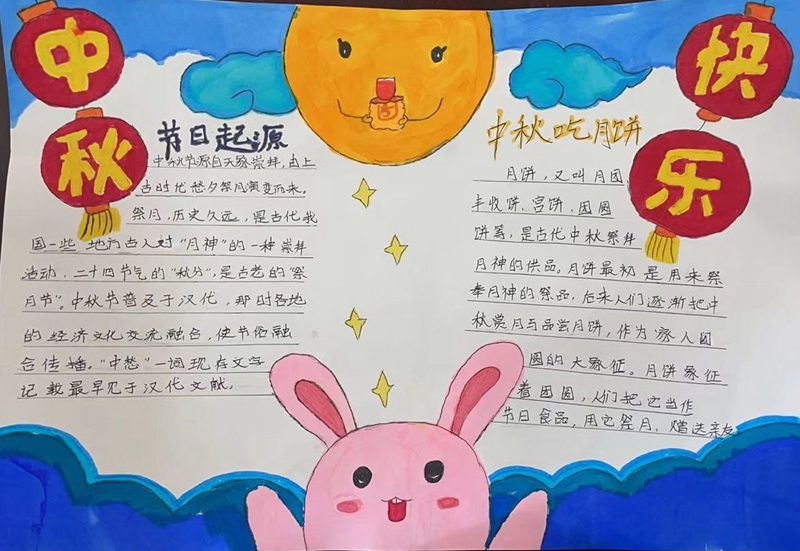 中
秋
快
乐
节日起源
中秋节源自天象崇拜,由上
古时代愁夕祭月演变而来。
祭月,历史久远,是古代我
国一些地方古人对“月神”的一种崇拜
活动,二十四节气的“秋分”,是古老的“祭
月节”。中秋节普及于汉代,那时各地
的经济文化交流融合,使节俗融
合传播。“中愁”一词现存文字
记载最早见于汉代文献。
中秋吃月饼
月饼,又叫月团
丰收饼、宫饼、团圆
饼等,是古代中秋祭拜
月神的供品。月饼最初是用来祭
奉月神的祭品,后来人们逐渐把中
秋赏月与品尝月饼,作为家人团
圆的大象征。月饼象征
着团圆,人们把它当作
节日食品,用它祭月、赠送亲友